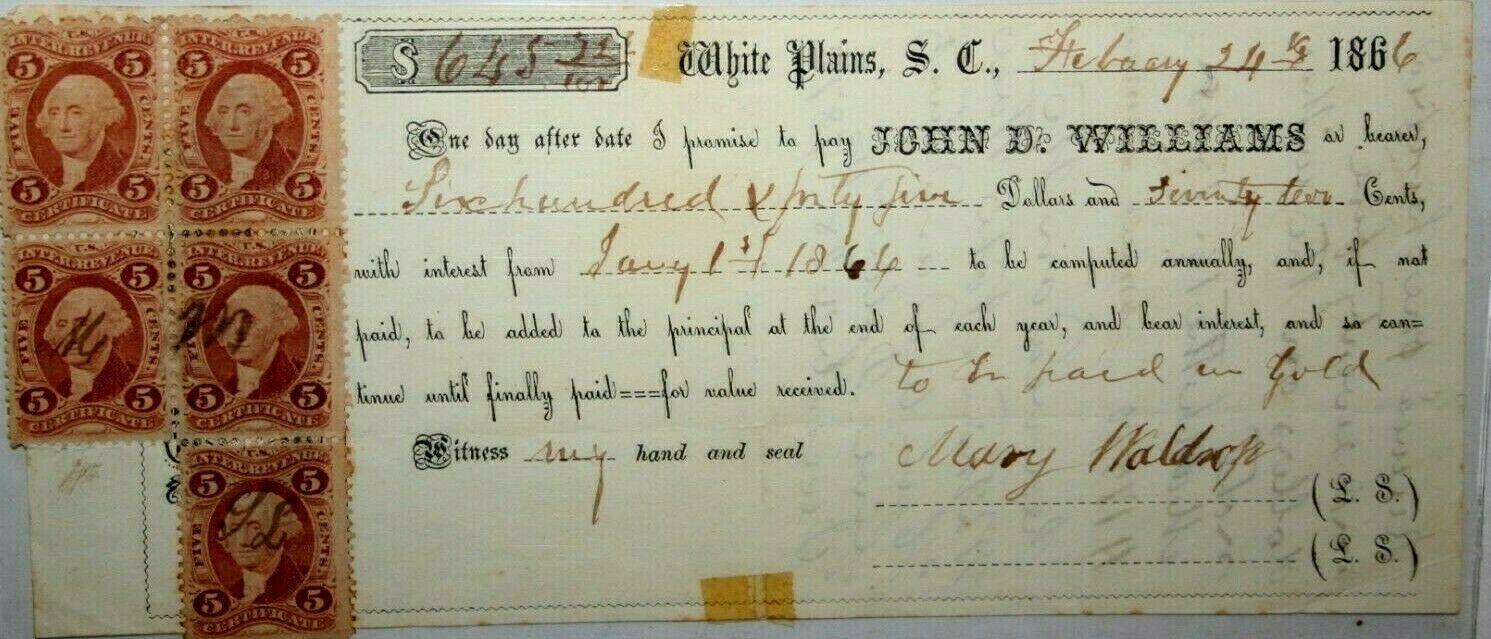 U.S. INTER. REVENUE
5 5
FIVE CENTS.
5 5
CERTIFICATE
U.S. INTER. REVENUE
5 5
FIVE CENTS.
5 5
CERTIFICATE
U.S. INTER. REVENUE
5 5
FIVE CENTS.
5 5
CERTIFICATE
U.S. INTER. REVENUE
5 5
FIVE CENTS.
5 5
CERTIFICATE
U.S. INTER. REVENUE
5 5
FIVE CENTS.
5 5
CERTIFICATE
$ 645 72/100 White Plains, S. C., Febuary 24th 1866
One day after date I promise to pay JOHN D. WILLIAMS or bearer,
Six hundred & forty five Dollars and Seventy two Cents,
with interest from Jany 1st 1866 to be computed annually, and, if not
paid, to be added to the principal at the end of each year, and bear interest, and so con=
tinue until finally paid===for value received. to be paid in Gold
Witness my hand and seal Mary Waldrop
(L. S.)
(L. S.)